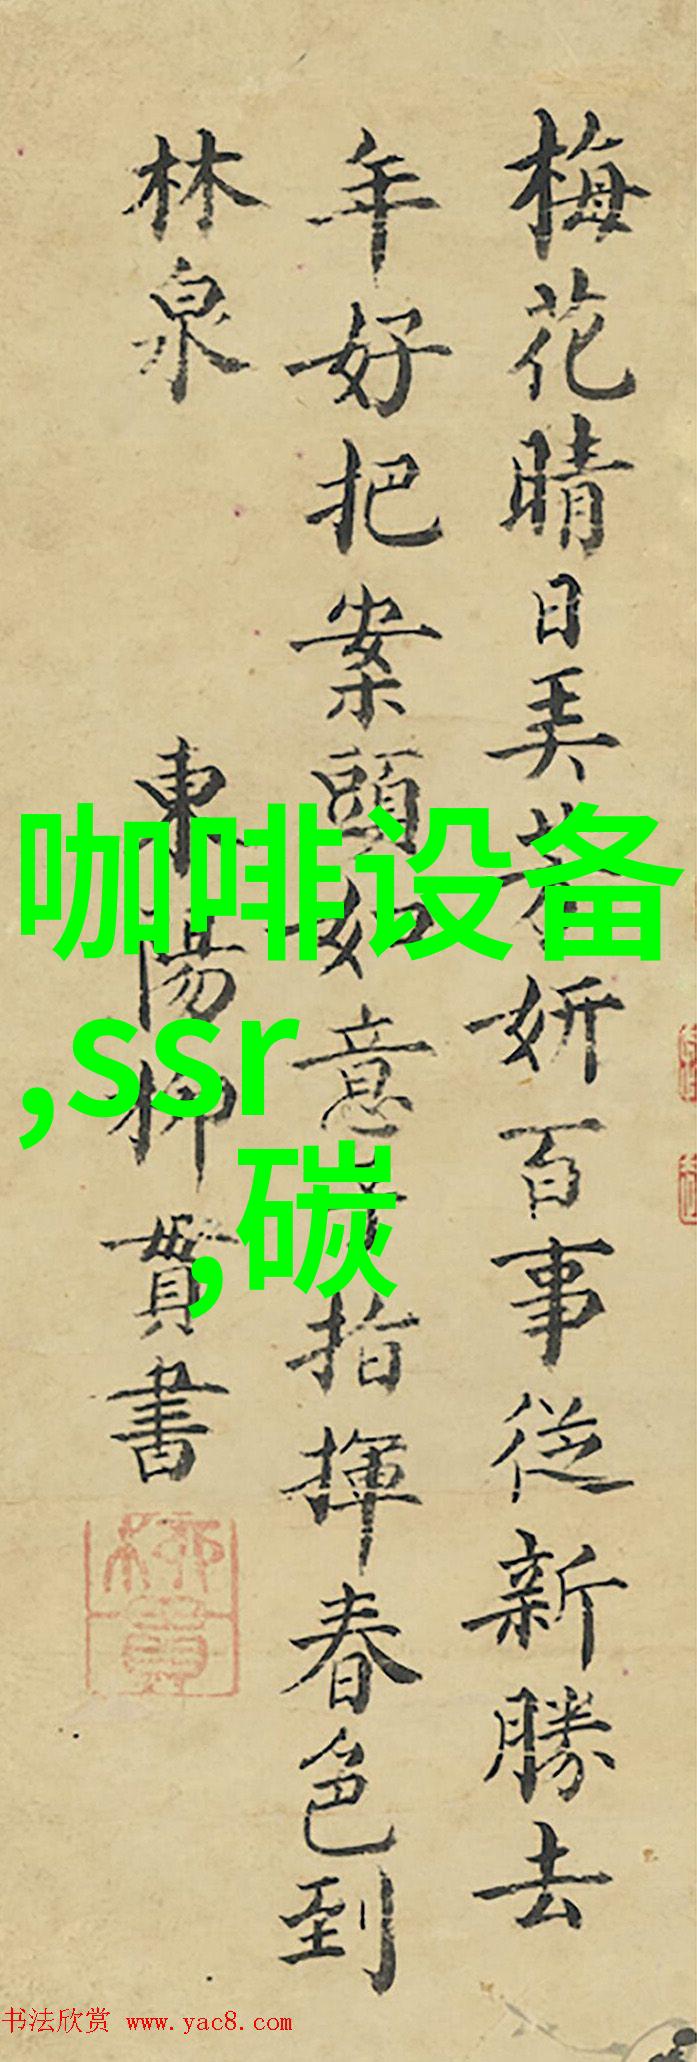 梅花晴日美妍百事從新勝去
年好把案頭如意子指揮春色到
林泉
東陽柳貫書
柳貫
咖啡设备
,ssr
,碳
书法欣赏 www.yac8.com